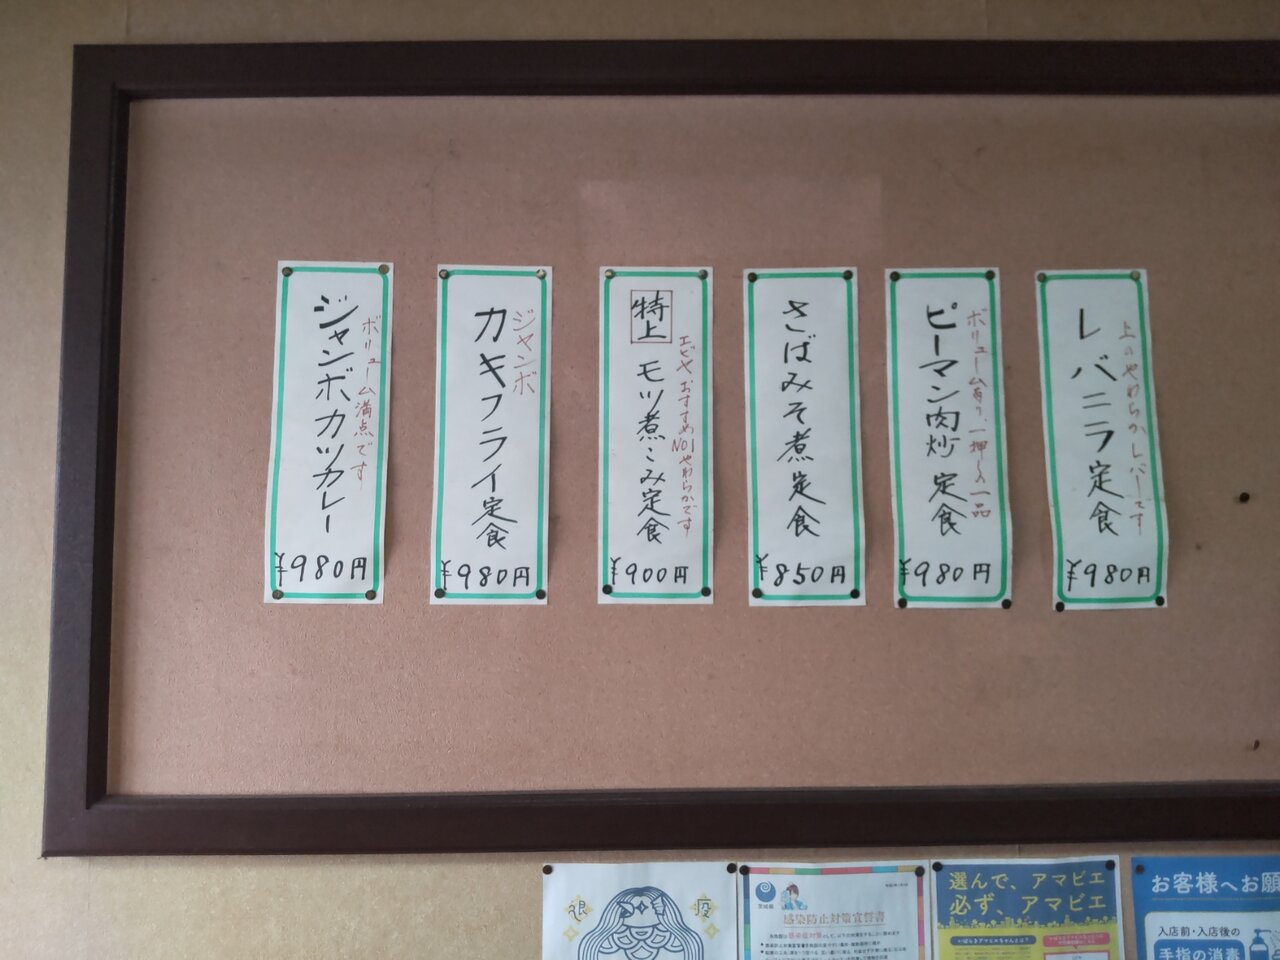 レバニラ定食
上のやわらかレバーです
¥980円
ピーマン肉炒定食
ボリューム有り、一押しの一品
¥980円
さばみそ煮定食
¥850円
特上
モツ煮こみ定食
エビヤおすすめNO1やわらかです
¥900円
ジャンボ
カキフライ定食
¥980円
ジャンボカツカレー
ボリューム満点です
¥980円
退
疫
茨城県
感染防止対策宣誓書
選んで、アマビエ
必ず、アマビエ
いばらきアマビエちゃんとは?
お客様へお願
入店前・入店後の
手指の消毒